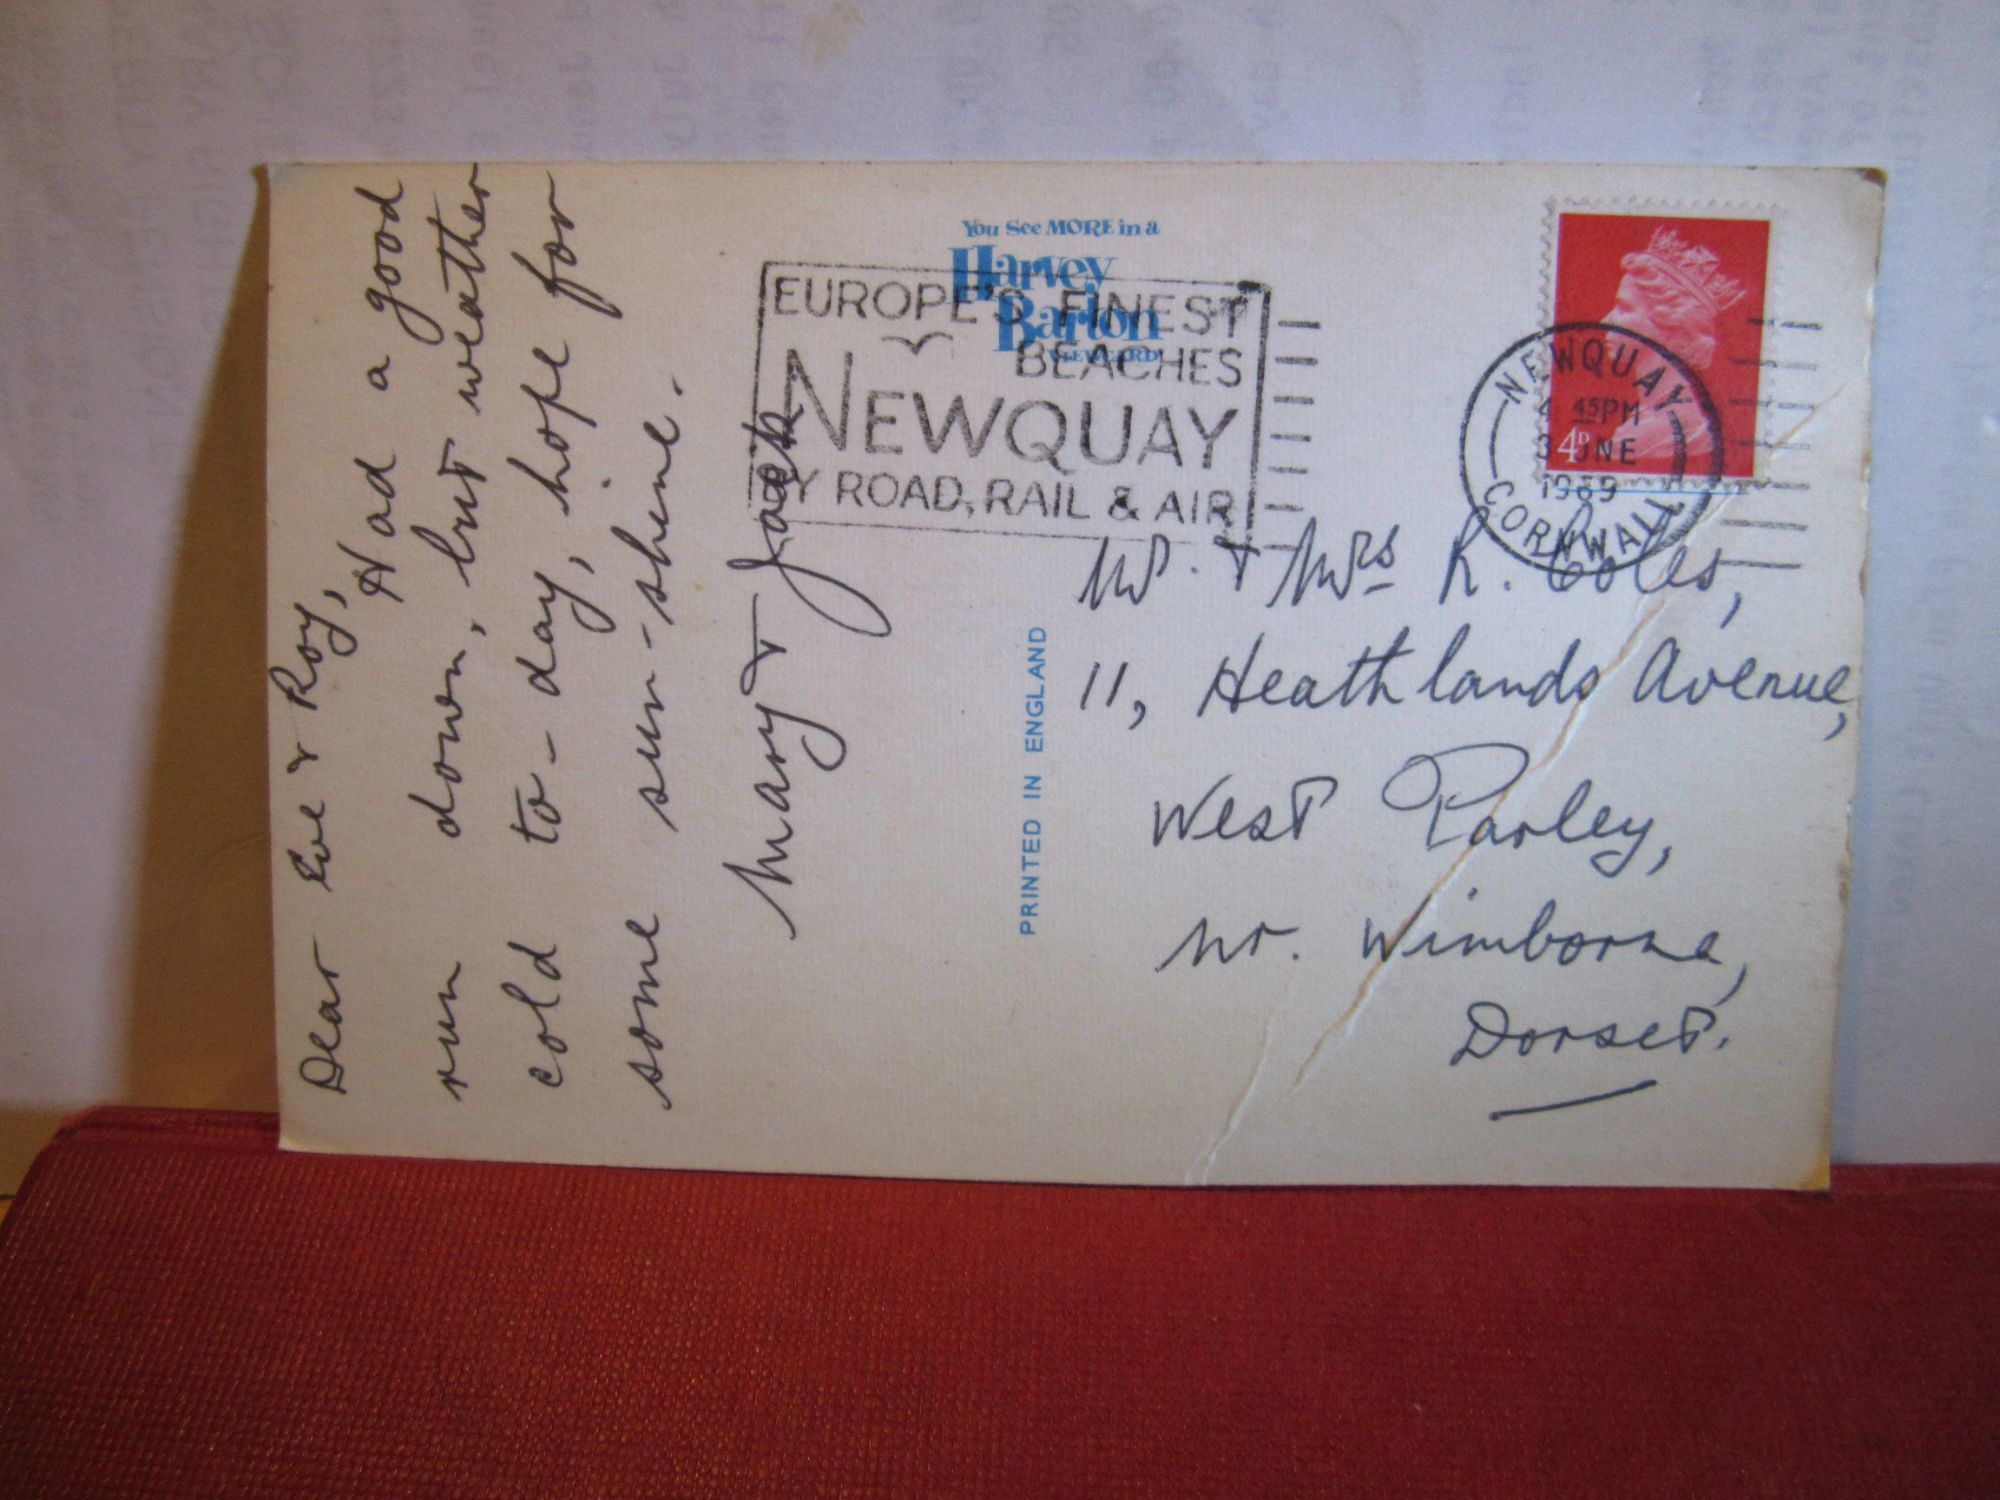 Dear Eve & Roy,
Had a good
run down, but weather
cold to-day, hope for
some sun-shine.
Mary & Jack
You See MORE in a
Harvey
Barton
VIEWCARD
EUROPE'S FINEST
BEACHES
NEWQUAY
BY ROAD, RAIL & AIR
PRINTED IN ENGLAND
NEWQUAY
4 45PM
3 JUNE
1969
CORNWALL
4D
Mr. & Mrs R. Coles,
11, Heathlands Avenue,
West Parley,
Nr. Wimborne,
Dorset.